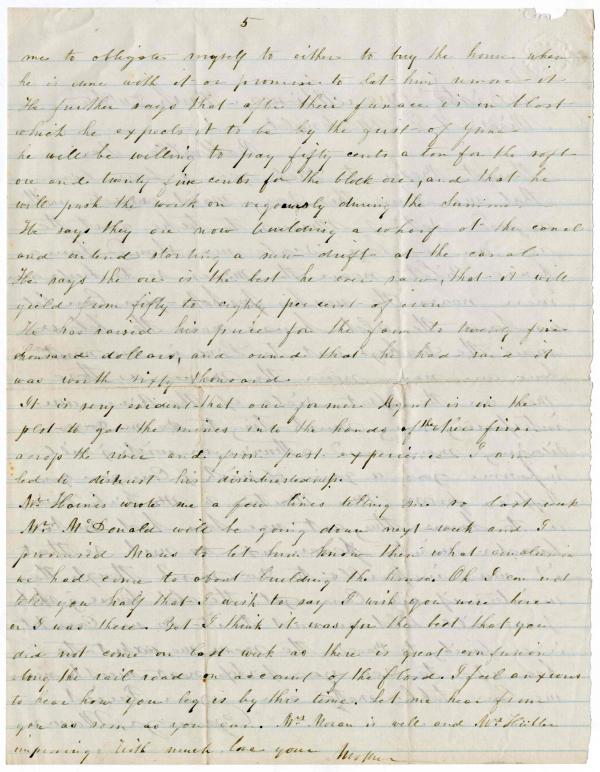 5
me to obligate myself to either to buy the house when
he is done with it or promise to let him remove it
He further says that after their furnace is in blast
which he expects it to be by the first of June
he will be willing to pay fifty cents a ton for the soft
ore and twenty five cents for the block ore, and that he
will push the work on vigorously during the Summer
He says they are now building a wharf at the canal
and intend starting a new drift at the canal
He says the ore is the best he ever saw, that it will
yield from fifty to eighty per cent of iron
He has raised his price for the farm to twenty five
thousand dollars, and owned that he had said it
was worth sixty thousand.
It is very evident that our former Agent is in the
plot to get the mines into the hands of the firm
across the river and from past experience I am
led to distrust his disinterestedness.
Mr Haines wrote me a few lines telling me so last week
Mr McDonald will be going down next week and I
promised to let him know then what conclusion
we had come to about building the house Oh I can not
tell you half that I wish to say I wish you were here
or I was there. But I think it was for the best that you
did not come on last week as there is great confusion
along the rail road on account of the flood. I feel anxious
to hear how you leg is by this time. Let me hear from
you as soon as you can. Mrs is well and Mr
improving. With much love your Mother